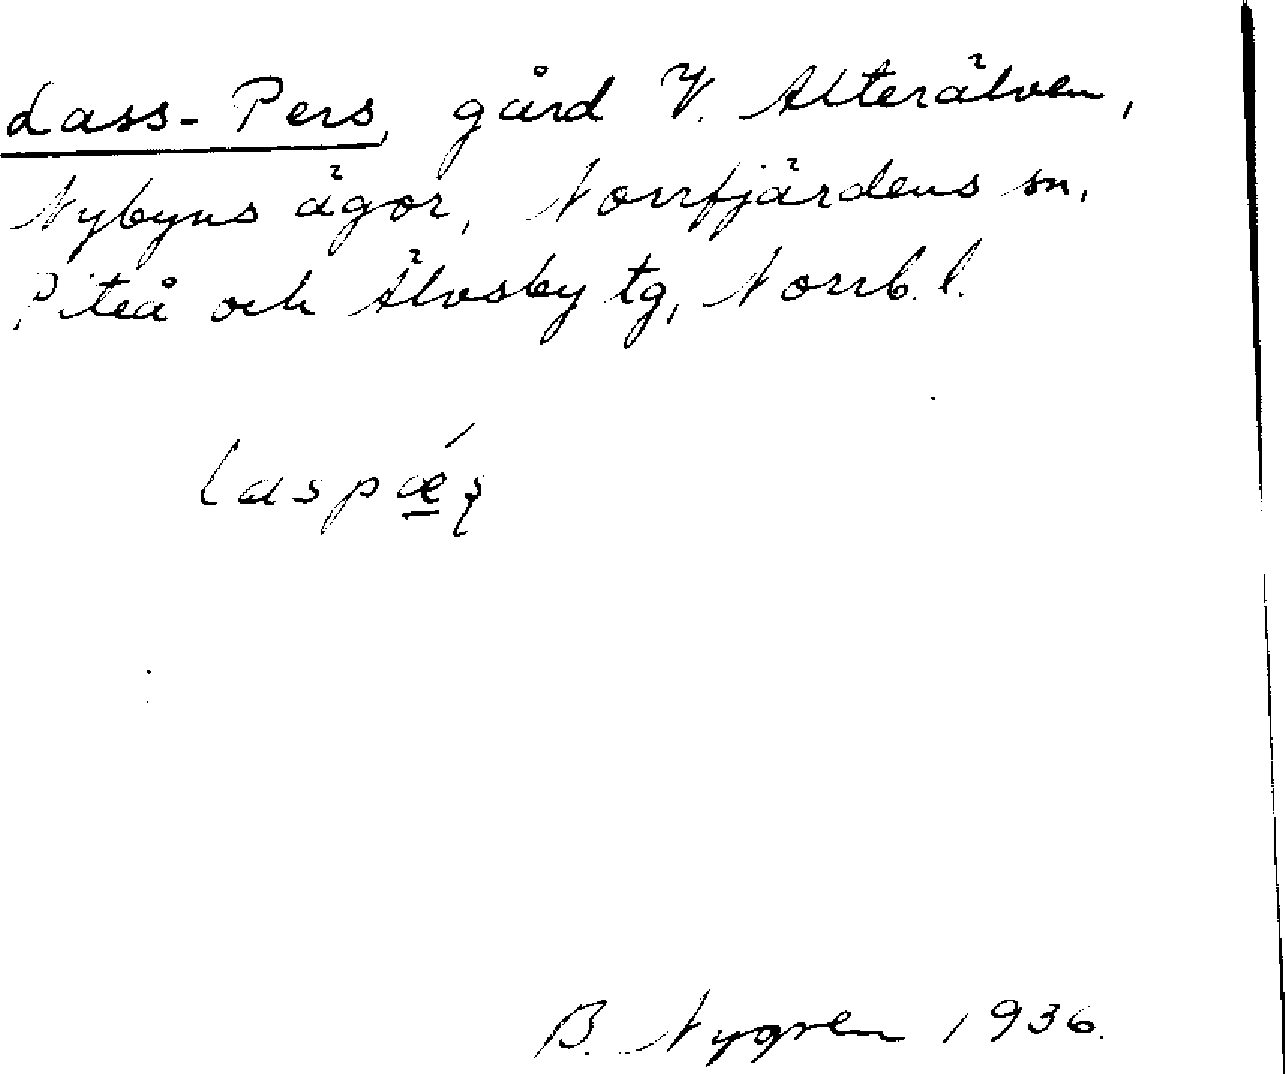 Lass-Pers, gård V. Alterälven,
Nybyns ägor, Norrfjärdens sn.
Piteå och Älvsby tg, Norrb. l.
laspǽʂ
B. Nygren 1936.